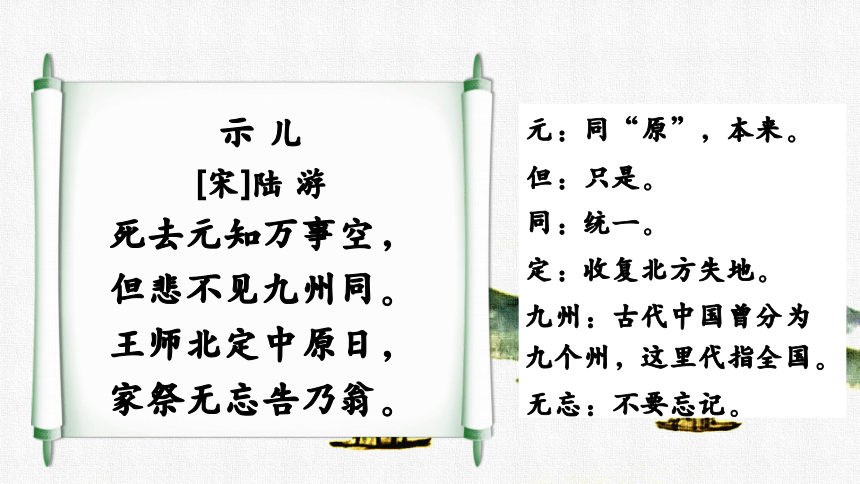 示 儿
[宋]陆 游
死去元知万事空，
但悲不见九州同。
王师北定中原日，
家祭无忘告乃翁。
元：同“原”，本来。
但：只是。
同：统一。
定：收复北方失地。
九州：古代中国曾分为
九个州，这里代指全国。
无忘：不要忘记。